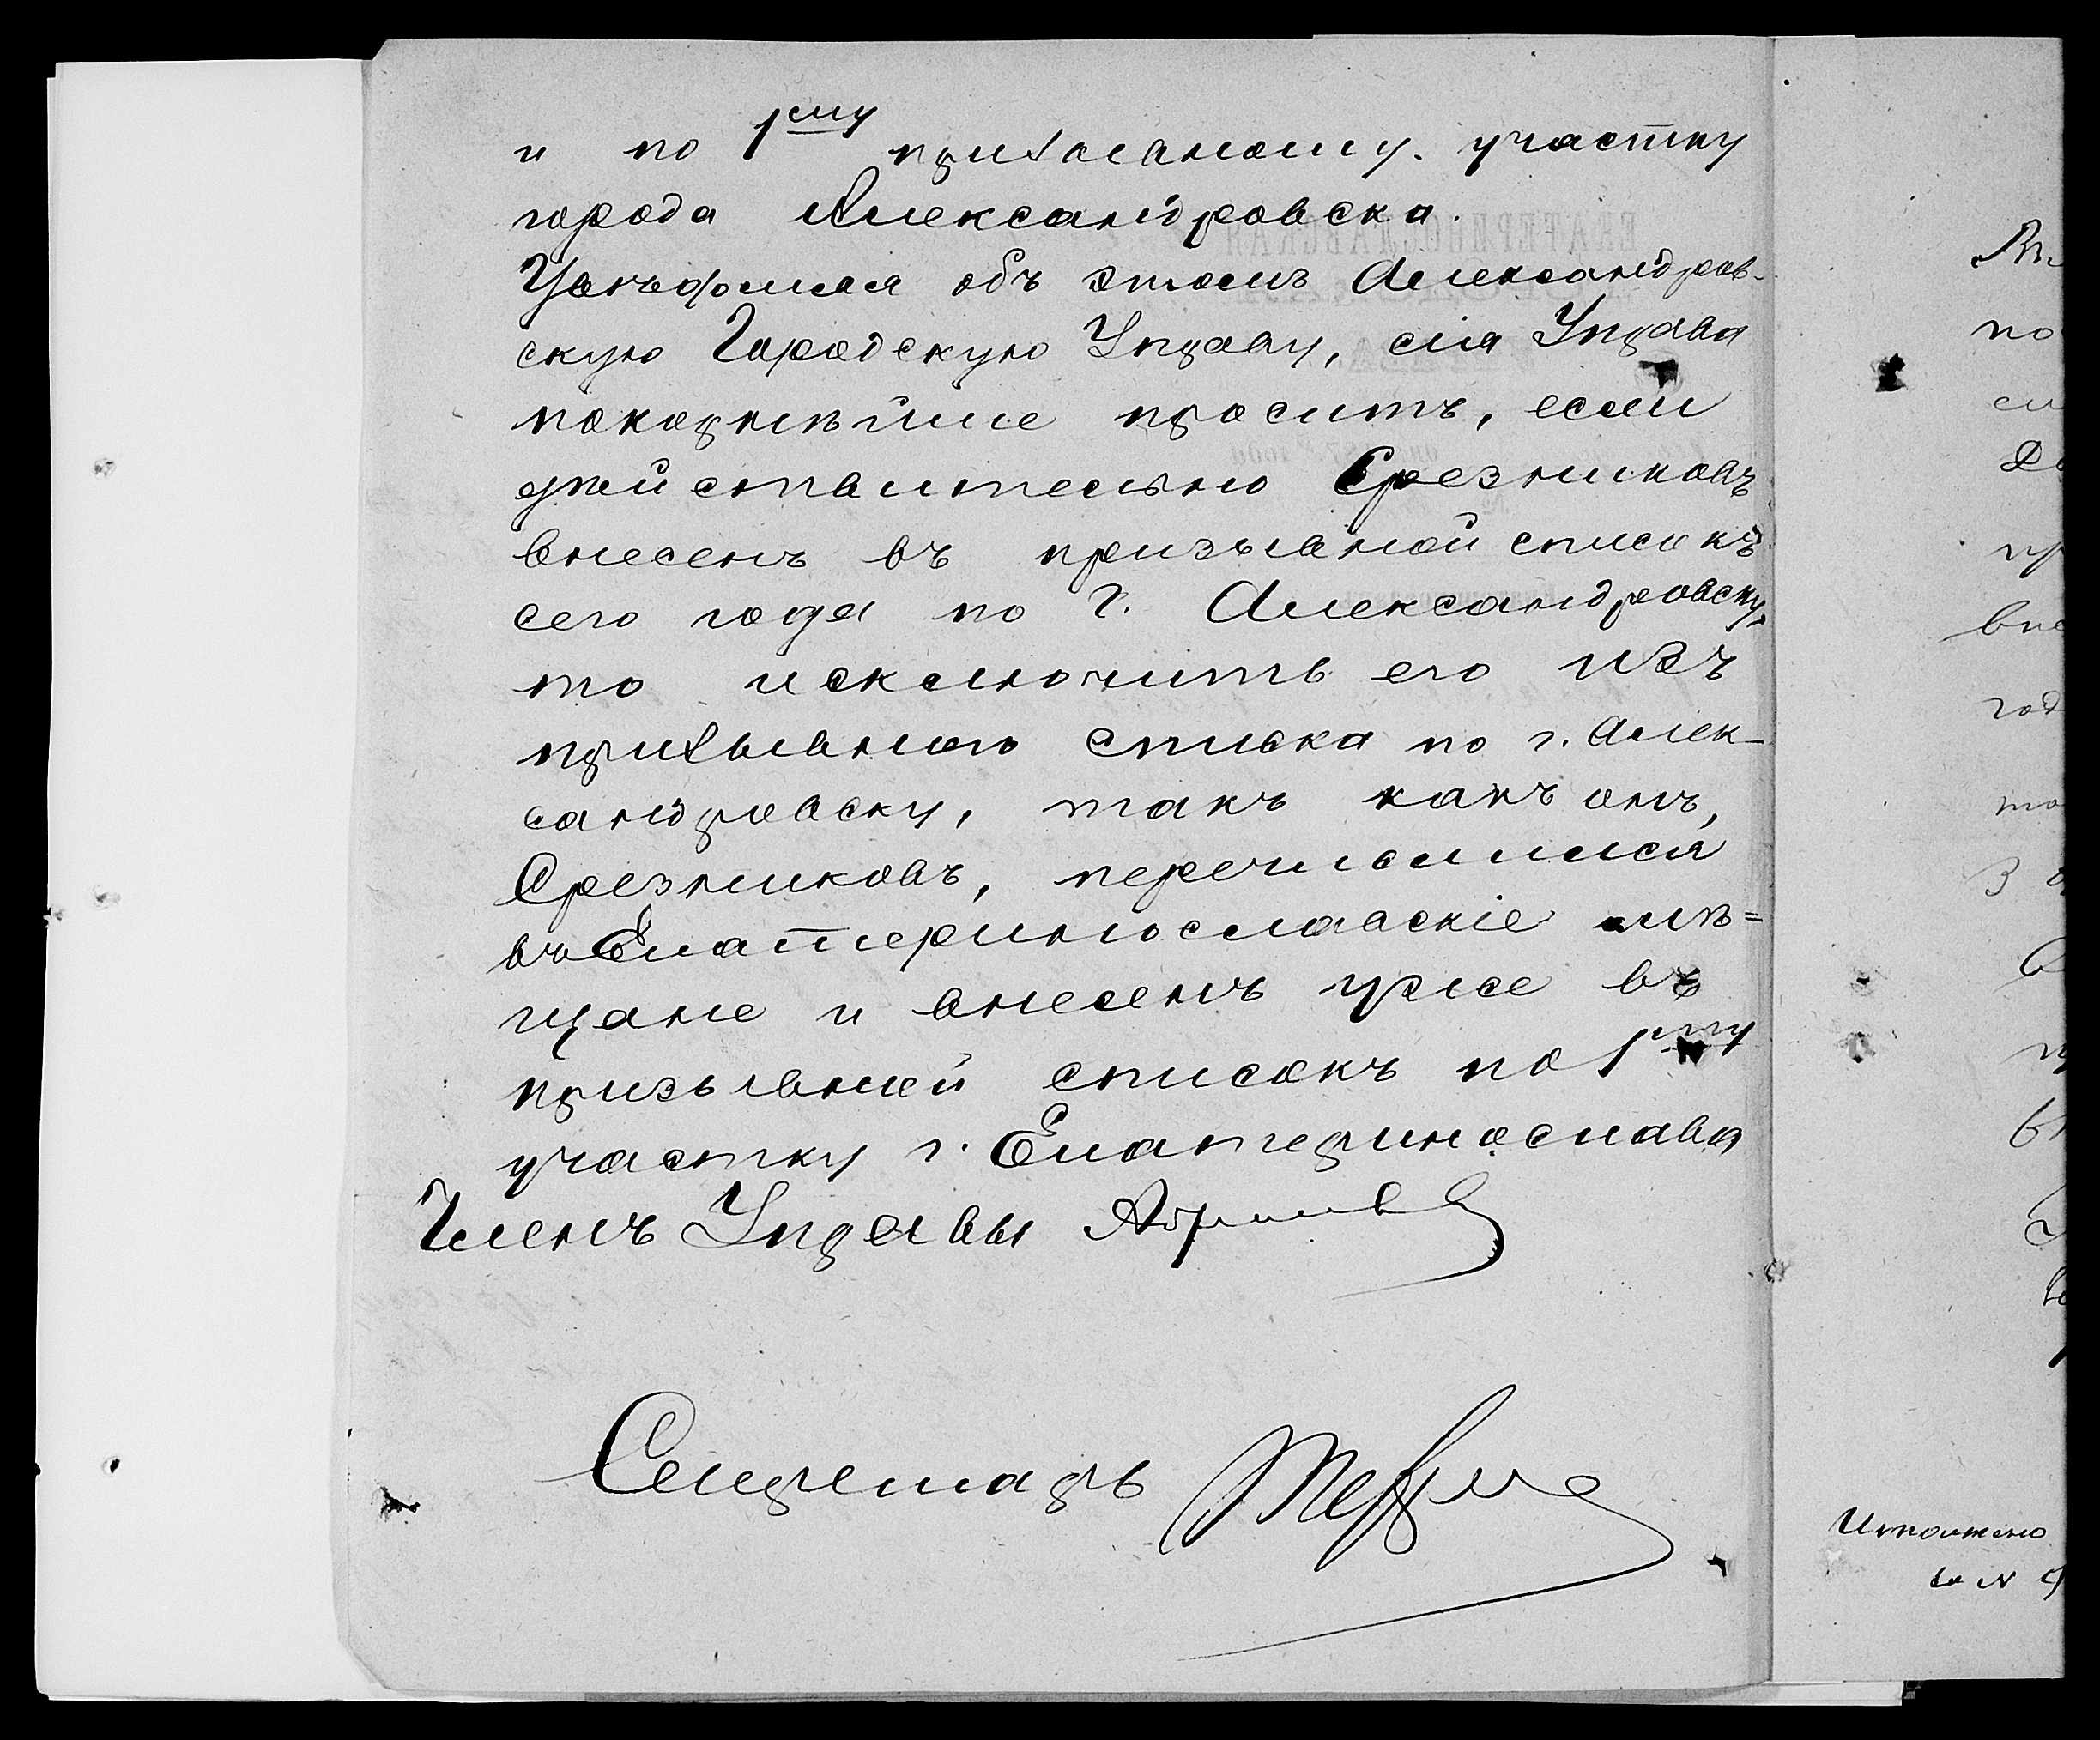 и по 1ому призывному участку
города Александровска.
Увѣдомляя объ этомъ Александров-
скую Городскую Управу, сія Управа
покорнѣйше проситъ, если
дѣйствительно Срезниковъ
внесенъ въ призывной списокъ
сего года по г. Александровску,
то исключить его изъ
призывного списка по г. Алек-
сандровску, такъ какъ онъ,
Срезниковъ, перечислился
въ Екатеринославскіе мѣ=
щане и внесенъ уже въ
призывной списокъ по 1му
участку г. Екатеринослава
Членъ Управы
Секретарь
по
вне
год
Исполнено
за №